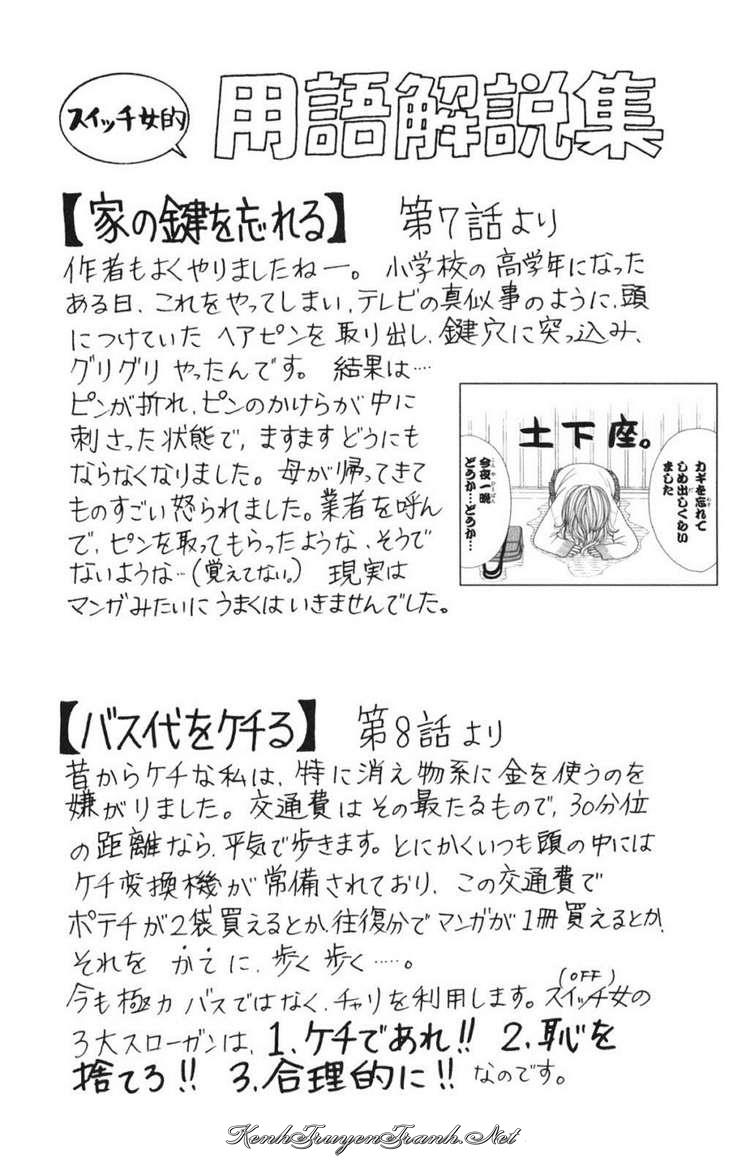 スイッチ女的
用語解説集
【家の鍵を忘れる】 第7話より
作者もよくやりましたねー。小学校の高学年になった
ある日、これをやってしまい、テレビの真似事のように、頭
につけていたヘアピンを取り出し、鍵穴に突っ込み、
グリグリやったんです。結果は…
ピンが折れ、ピンのかけらが中に
刺さった状態で、ますますどうにも
ならなくなりました。母が帰ってきて
ものすごい怒られました。業者を呼ん
で、ピンを取ってもらったような、そうで
ないような…(覚えてない。) 現実は
マンガみたいにうまくはいきませんでした。
土下座。
カギを忘れて
しめ出しくらい
ました
今夜一晩
どうか…どうか…
【バス代をケチる】 第8話より
昔からケチな私は、特に消え物系に金を使うのを
嫌がりました。交通費はその最たるもので、30分位
の距離なら、平気で歩きます。とにかくいつも頭の中には
ケチ変換機が常備されており、この交通費で
ポテチが2袋買えるとか、往復分でマンガが1冊買えるとか、
それをかてに、歩く歩く……。
今も極力バスではなく、チャリを利用します。スイッチ(OFF)女の
3大スローガンは、1、ケチであれ!! 2、恥を
捨てろ!! 3、合理的に!! なのです。
KenhTruyenTranh.Net